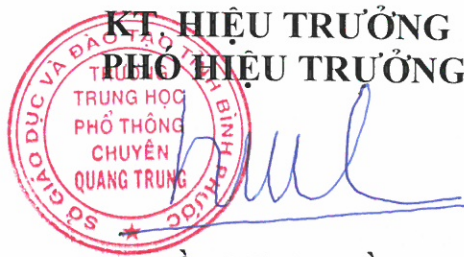 KT. HIỆU TRƯỞNG
PHÓ HIỆU TRƯỞNG
SỞ GIÁO DỤC VÀ ĐÀO TẠO TỈNH BÌNH PHƯỚC
TRƯỜNG
TRUNG HỌC
PHỔ THÔNG
CHUYÊN
QUANG TRUNG